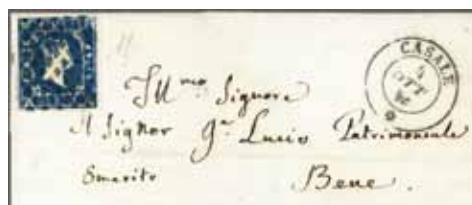 CASALE
5
OTT
Ill.mo Signore
Il Signor G.a Lucio Patrimoniale
Emerito Bene.